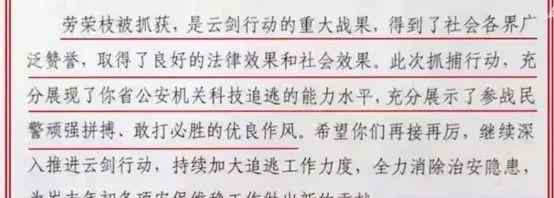 劳荣枝被抓获，是云剑行动的重大战果，得到了社会各界广
泛赞誉，取得了良好的法律效果和社会效果。此次抓捕行动，充
分展现了你省公安机关科技追逃的能力水平，充分展示了参战民
警顽强拼搏、敢打必胜的优良作风。希望你们再接再厉，继续深
入推进云剑行动，持续加大追逃工作力度，全力消除治安隐患，